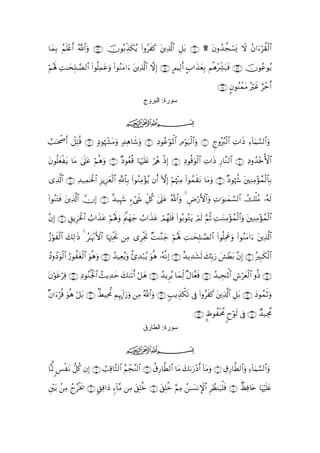 ٱلْقُرْءَانُ لَا يَسْجُدُونَ ۩ بَلِ ٱلَّذِينَ كَفَرُوا۟ يُكَذِّبُونَ وَٱللَّهُ أَعْلَمُ بِمَا
يُوعُونَ فَبَشِّرْهُم بِعَذَابٍ أَلِيمٍ إِلَّا ٱلَّذِينَ ءَامَنُوا۟ وَعَمِلُوا۟ ٱلصَّـٰلِحَـٰتِ لَهُمْ
أَجْرٌ غَيْرُ مَمْنُونٍۭ
سورة: البروج
بسم الله الرحمن الرحيم
وَٱلسَّمَآءِ ذَاتِ ٱلْبُرُوجِ وَٱلْيَوْمِ ٱلْمَوْعُودِ وَشَاهِدٍ وَمَشْهُودٍ قُتِلَ أَصْحَـٰبُ
ٱلْأُخْدُودِ ٱلنَّارِ ذَاتِ ٱلْوَقُودِ إِذْ هُمْ عَلَيْهَا قُعُودٌ وَهُمْ عَلَىٰ مَا يَفْعَلُونَ
بِٱلْمُؤْمِنِينَ شُهُودٌ وَمَا نَقَمُوا۟ مِنْهُمْ إِلَّآ أَن يُؤْمِنُوا۟ بِٱللَّهِ ٱلْعَزِيزِ ٱلْحَمِيدِ ٱلَّذِى
لَهُۥ مُلْكُ ٱلسَّمَـٰوَٰتِ وَٱلْأَرْضِ ۚ وَٱللَّهُ عَلَىٰ كُلِّ شَىْءٍ شَهِيدٌ إِنَّ ٱلَّذِينَ فَتَنُوا۟
ٱلْمُؤْمِنِينَ وَٱلْمُؤْمِنَـٰتِ ثُمَّ لَمْ يَتُوبُوا۟ فَلَهُمْ عَذَابُ جَهَنَّمَ وَلَهُمْ عَذَابُ ٱلْحَرِيقِ إِنَّ
ٱلَّذِينَ ءَامَنُوا۟ وَعَمِلُوا۟ ٱلصَّـٰلِحَـٰتِ لَهُمْ جَنَّـٰتٌ تَجْرِى مِن تَحْتِهَا ٱلْأَنْهَـٰرُ ۚ ذَٰلِكَ ٱلْفَوْزُ
ٱلْكَبِيرُ إِنَّ بَطْشَ رَبِّكَ لَشَدِيدٌ إِنَّهُۥ هُوَ يُبْدِئُ وَيُعِيدُ وَهُوَ ٱلْغَفُورُ ٱلْوَدُودُ
ذُو ٱلْعَرْشِ ٱلْمَجِيدُ فَعَّالٌ لِّمَا يُرِيدُ هَلْ أَتَىٰكَ حَدِيثُ ٱلْجُنُودِ فِرْعَوْنَ
وَثَمُودَ بَلِ ٱلَّذِينَ كَفَرُوا۟ فِى تَكْذِيبٍ وَٱللَّهُ مِن وَرَآئِهِم مُّحِيطٌۢ بَلْ هُوَ قُرْءَانٌ
مَّجِيدٌ فِى لَوْحٍ مَّحْفُوظٍۭ
سورة: الطارق
بسم الله الرحمن الرحيم
وَٱلسَّمَآءِ وَٱلطَّارِقِ وَمَآ أَدْرَىٰكَ مَا ٱلطَّارِقُ ٱلنَّجْمُ ٱلثَّاقِبُ إِن كُلُّ نَفْسٍ لَّمَّا
عَلَيْهَا حَافِظٌ فَلْيَنظُرِ ٱلْإِنسَـٰنُ مِمَّ خُلِقَ خُلِقَ مِن مَّآءٍ دَافِقٍ يَخْرُجُ مِنۢ بَيْنِ